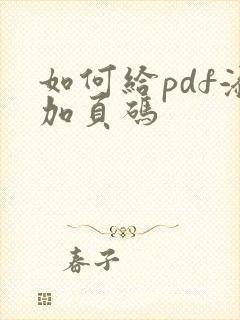 如何給pdf添
加頁碼
春子